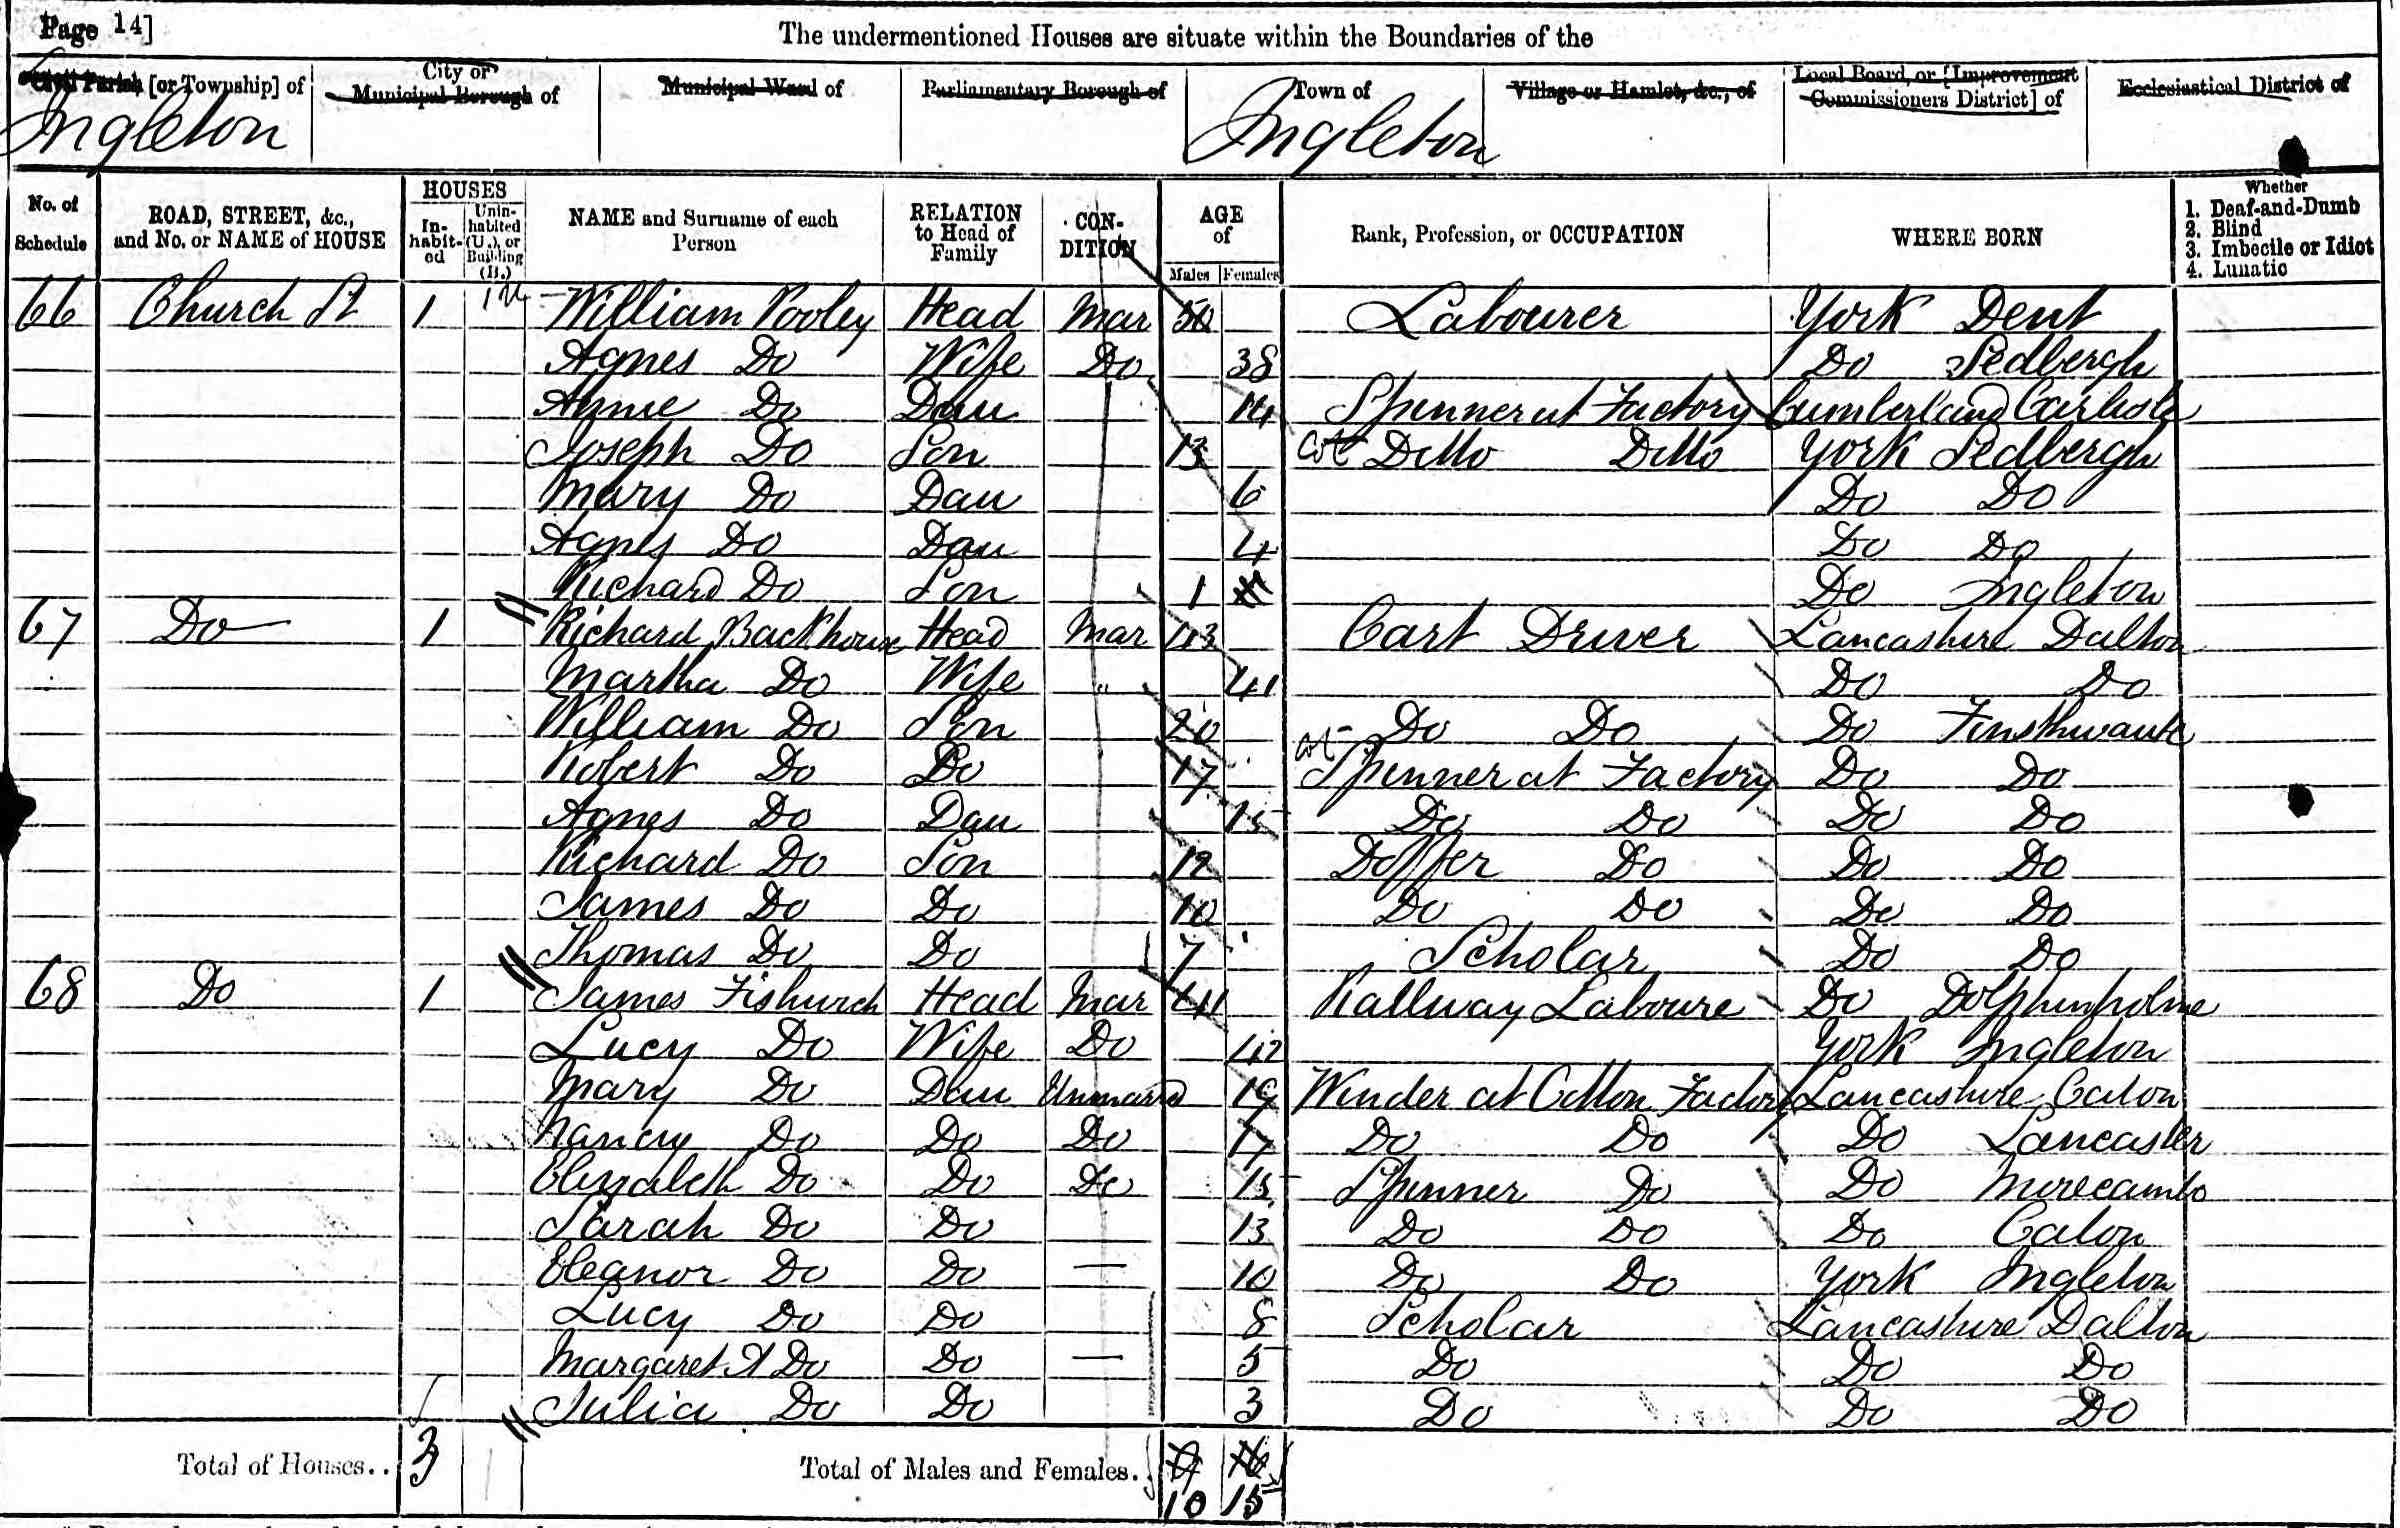 Page 14]
The undermentioned Houses are situate within the Boundaries of the
Civil Parish [or Township] of City or Municipal Borough of Municipal Ward of Parliamentary Borough of Town of Village or Hamlet, &c., of Local Board, or [Improvement Commissioners District] of Ecclesiastical District of
Ingleton Ingleton
No. of Schedule ROAD, STREET, &c., and No. or NAME of HOUSE HOUSES Inhabited Uninhabited (U.), or Building (B.) NAME and Surname of each Person RELATION to Head of Family CONDITION AGE of Males Females Rank, Profession, or OCCUPATION WHERE BORN Whether 1. Deaf-and-Dumb 2. Blind 3. Imbecile or Idiot 4. Lunatic
66 Church St 1 1 U William Pooley Head Mar Labourer York Dent
Agnes Do Wife Do 38 Do Sedbergh
Annie Do Dau 14 Spinner at Factory Cumberland Carlisle
Joseph Do Son 13 cot Ditto Ditto York Sedbergh
Mary Do Dau 6 Do Do
Agnes Do Dau 4 Do Do
Richard Do Son 1 Do Ingleton
67 Do 1 Richard Backhouse Head Mar 43 Cart Driver Lancashire Dalton
Martha Do Wife " 41 Do Do
William Do Son 20 Do Do Do Finsthwaite
Robert Do Do 17 cot Spinner at Factory Do Do
Agnes Do Dau 15 Do Do Do Do
Richard Do Son 12 Doffer Do Do Do
James Do Do 10 Do Do Do Do
Thomas Do Do 7 Scholar Do Do
68 Do 1 James Fishwick Head Mar 41 Railway Laboure Do Dolphinholme
Lucy Do Wife Do 42 York Ingleton
Mary Do Dau Unmarrd 19 Winder at Cotton Factory Lancashire Caton
Nancy Do Do Do 17 Do Do Do Lancaster
Elizabeth Do Do Do 15 Spinner Do Do Morecambe
Sarah Do Do 13 Do Do Do Caton
Eleanor Do Do — 10 Do Do York Ingleton
Lucy Do Do 8 Scholar Lancashire Dalton
Margaret A Do Do — 5 Do Do Do
Julia Do Do 3 Do Do Do
Total of Houses.. 3 1 Total of Males and Females.. 9 16
10 15